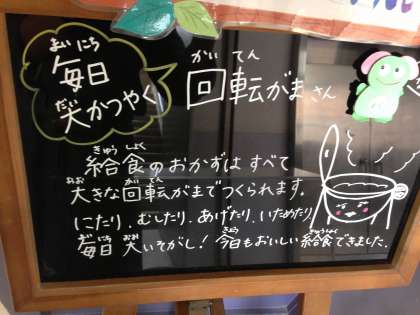 まいにち
毎日
だい
大かつやく
かいてん
回転がまさん
きゅうしょく
給食のおかずは すべて
おお かいてん
大きな回転がまでつくられます。
にたり、むしたり、あげたり、いためたり、
まいにち おお
毎日 大いそがし! 今日もおいしい給食できました。
きょう きゅうしょく